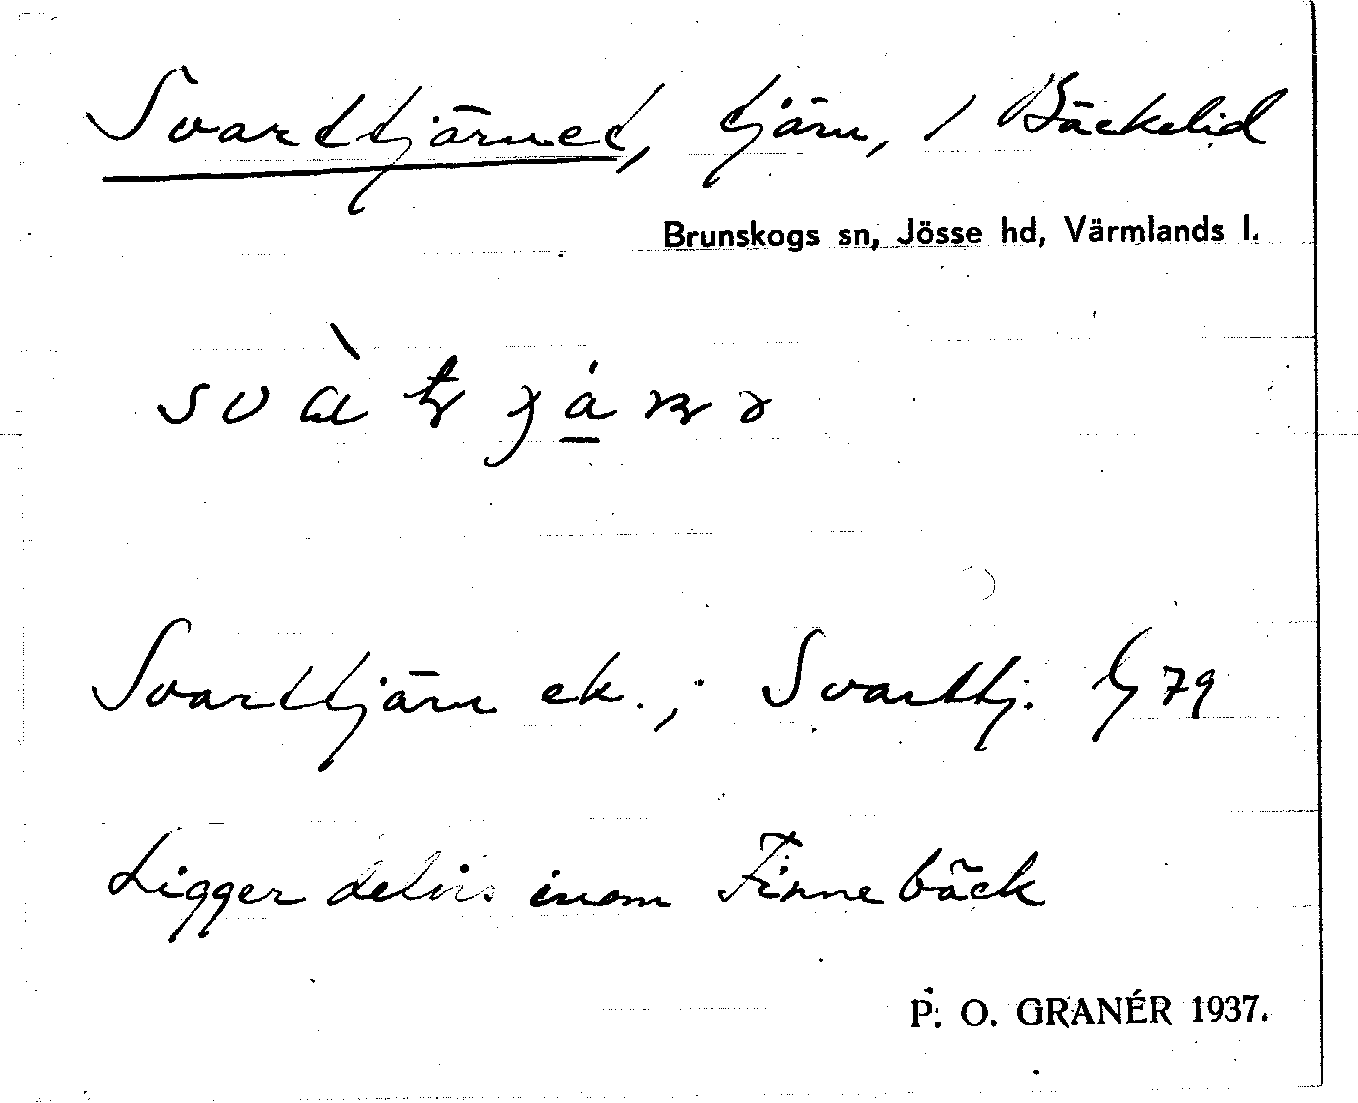 Svarttjärnet, tjärn, / Bäckelid
Brunskogs sn, Jösse hd, Värmlands l.
Svarttjärn ek.; Svarttj. G 79
Ligger delvis inom Finnebäck
P. O. GRANÉR 1937.